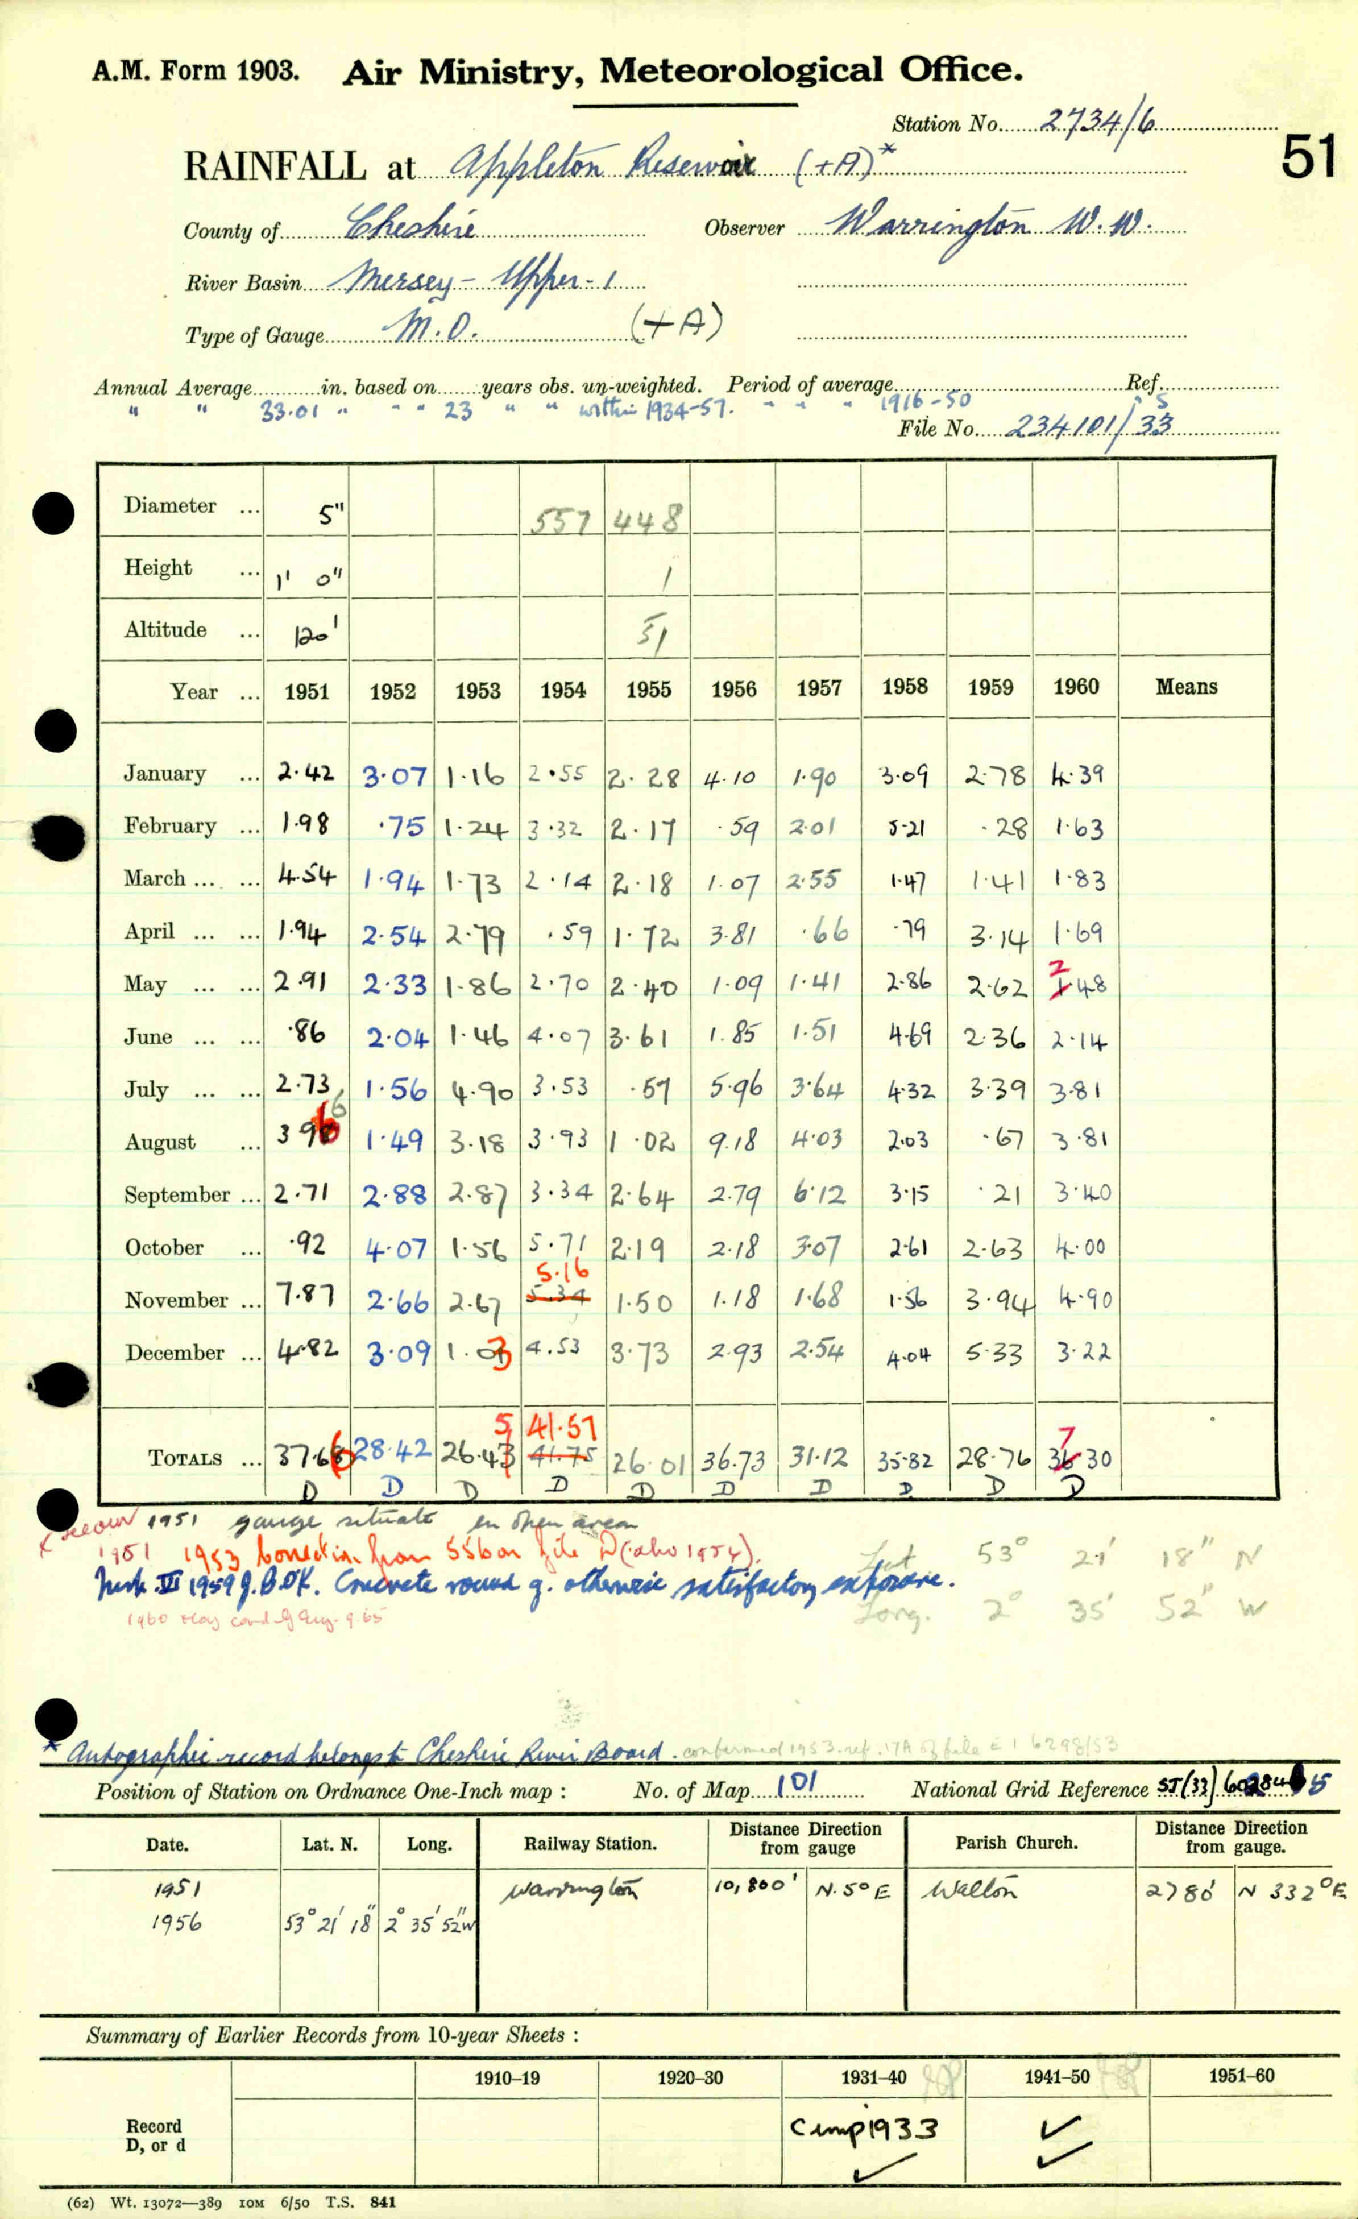 A.M. Form 1903. Air Ministry, Meteorological Office.
Station No. 2734/6
51
RAINFALL at Appleton Reservoir (+A)*
County of Cheshire Observer Warrington W.W.
River Basin Mersey - Upper - 1
Type of Gauge M.O. (+A)
Annual Average in. based on years obs. un-weighted. Period of average Ref.
" " 33.01 " " " 23 " " within 1934-57. " " " 1916-50
File No. 234101/33 5
Diameter ... 5" 557 448
Height ... 1' 0" 1
Altitude ... 120' 51
Year ... 1951 1952 1953 1954 1955 1956 1957 1958 1959 1960 Means
January ... 2.42 3.07 1.16 2.55 2.28 4.10 1.90 3.09 2.78 4.39
February ... 1.98 .75 1.24 3.32 2.17 .59 2.01 5.21 .28 1.63
March ... ... 4.54 1.94 1.73 2.14 2.18 1.07 2.55 1.47 1.41 1.83
April ... ... 1.94 2.54 2.79 .59 1.72 3.81 .66 .79 3.14 1.69
2
May ... ... 2.91 2.33 1.86 2.70 2.40 1.09 1.41 2.86 2.62 1.48
June ... ... .86 2.04 1.46 4.07 3.61 1.85 1.51 4.69 2.36 2.14
July ... ... 2.73 1.56 4.90 3.53 .57 5.96 3.64 4.32 3.39 3.81
6
August ... 3.96 1.49 3.18 3.93 1.02 9.18 4.03 2.03 .67 3.81
September ... 2.71 2.88 2.87 3.34 2.64 2.79 6.12 3.15 .21 3.40
October ... .92 4.07 1.56 5.71 2.19 2.18 3.07 2.61 2.63 4.00
5.16
November ... 7.87 2.66 2.67 5.34 1.50 1.18 1.68 1.56 3.94 4.90
December ... 4.82 3.09 1.03 4.53 3.73 2.93 2.54 4.04 5.33 3.22
5 41.57 7
TOTALS ... 37.66 28.42 26.43 41.75 26.01 36.73 31.12 35.82 28.76 36.30
D D D D D D D D D D
1951 gauge situate in open area
1951 1953 correction from 55 on file D (also 1954).
VII 1959 J.B.D.K. Concrete round g. otherwise satisfactory exposure.
1960 May corrd Aug. 9.65
Lat 53° 21' 18" N
Long. 2° 35' 52" W
* Autographic record belongs to Cheshire River Board. confirmed 1953. ref. 17A of file E1 6298/53
Position of Station on Ordnance One-Inch map : No. of Map 101 National Grid Reference SJ(33) 602845
Date. Lat. N. Long. Railway Station. Distance Direction from gauge Parish Church. Distance Direction from gauge.
1951 Warrington 10,800' N.5°E Walton 2780' N 332°E
1956 53° 21' 18" 2° 35' 52"W
Summary of Earlier Records from 10-year Sheets :
1910–19 1920–30 1931–40 1941–50 1951–60
Record D, or d Comp 1933 ✓ ✓ ✓
(62) Wt. 13072—389 10M 6/50 T.S. 841